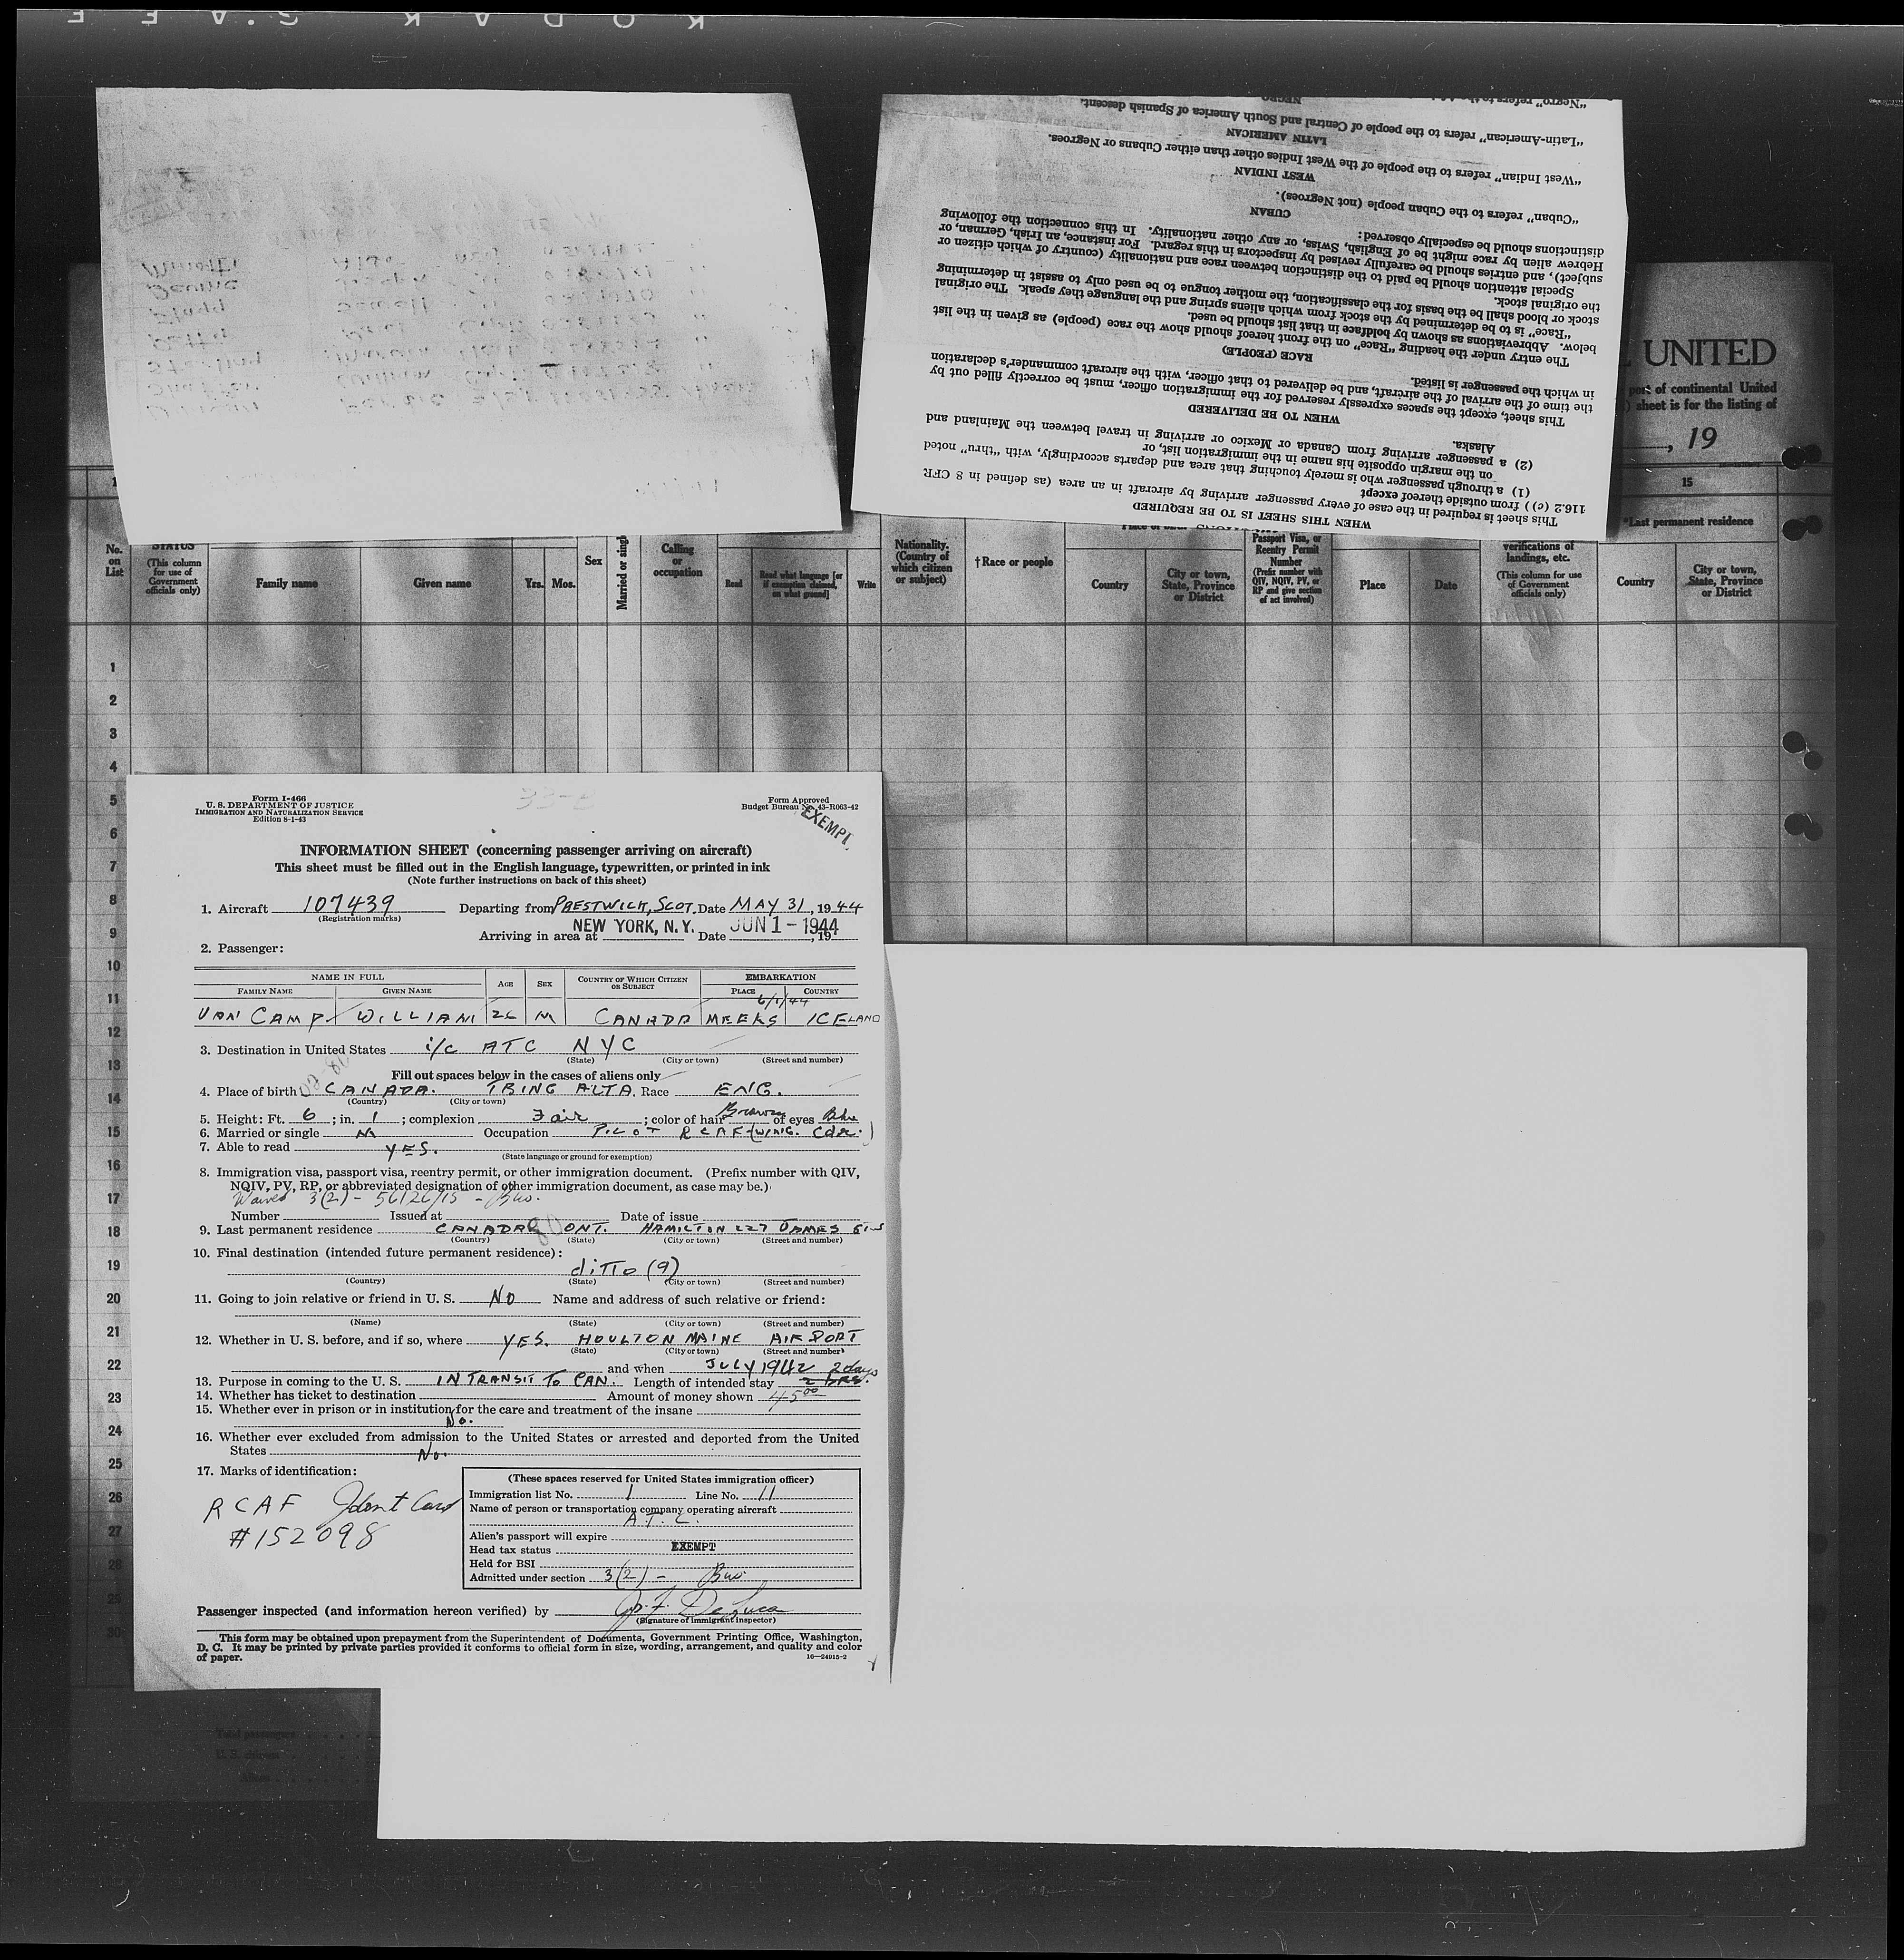 KODAK SAFE
"Negro" refers to the
NEGRO
"Latin-American" refers to the people of Central and South America of Spanish descent.
LATIN AMERICAN
"West Indian" refers to the people of the West Indies other than either Cubans or Negroes.
WEST INDIAN
"Cuban" refers to the Cuban people (not Negroes).
CUBAN
distinctions should be especially observed:
Hebrew alien by race might be of English, Swiss, or any other nationality. In this connection the following
subject), and entries should be carefully revised by inspectors in this regard. For instance, an Irish, German, or
Special attention should be paid to the distinction between race and nationality (country of which citizen or
the original stock.
stock or blood shall be the basis for the classification, the mother tongue to be used only to assist in determining
"Race" is to be determined by the stock from which aliens spring and the language they speak. The original
below. Abbreviations as shown by boldface in that list should be used.
The entry under the heading "Race" on the front hereof should show the race (people) as given in the list
RACE (PEOPLE)
in which the passenger is listed.
the time of the arrival of the aircraft, and be delivered to that officer, with the aircraft commander's declaration
This sheet, except the spaces expressly reserved for the immigration officer, must be correctly filled out by
WHEN TO BE DELIVERED
Alaska.
(2) a passenger arriving from Canada or Mexico or arriving in travel between the Mainland and
on the margin opposite his name in the immigration list, or
(1) a through passenger who is merely touching that area and departs accordingly, with "thru" noted
116.2 (c)) from outside thereof except
This sheet is required in the case of every passenger arriving by aircraft in an area (as defined in 8 CFR
WHEN THIS SHEET IS TO BE REQUIRED
UNITED
port of continental United
sheet is for the listing of
, 19
15
*Last permanent residence
No. on List
STATUS
(This column for use of Government officials only)
Family name
Given name
Yrs. Mos.
Sex
Married or single
Calling or occupation
Read
Read what language [or if exemption claimed, on what ground]
Write
Nationality. (Country of which citizen or subject)
†Race or people
Country
City or town, State, Province or District
Passport Visa, or Reentry Permit Number
(Prefix number with QIV, NQIV, PV, or RP and give section of act involved)
Place
Date
verifications of landings, etc.
(This column for use of Government officials only)
Country
City or town, State, Province or District
1
2
3
4
5
6
7
8
9
10
11
12
13
14
15
16
17
18
19
20
21
22
23
24
25
26
27
28
29
30
Form I-466
U. S. DEPARTMENT OF JUSTICE
IMMIGRATION AND NATURALIZATION SERVICE
Edition 8-1-43
Form Approved
Budget Bureau No. 43-R063-42
EXEMPT
INFORMATION SHEET (concerning passenger arriving on aircraft)
This sheet must be filled out in the English language, typewritten, or printed in ink
(Note further instructions on back of this sheet)
1. Aircraft 107439 Departing from PRESTWICK, SCOT. Date MAY 31, 1944
(Registration marks)
Arriving in area at NEW YORK, N.Y. Date JUN 1 - 1944, 19
2. Passenger:
NAME IN FULL
AGE
SEX
COUNTRY OF WHICH CITIZEN OR SUBJECT
EMBARKATION
FAMILY NAME
GIVEN NAME
PLACE
COUNTRY
6/1/44
VAN CAMP WILLIAM 26 M CANADA MEEKS ICELAND
3. Destination in United States i/c ATC NYC
(State) (City or town) (Street and number)
Fill out spaces below in the cases of aliens only
4. Place of birth CANADA. TRING ALTA. Race ENG.
(Country) (City or town)
5. Height: Ft. 6; in. 1; complexion Fair; color of hair Brown of eyes Blue
6. Married or single M Occupation PILOT RCAF (WING. Cdr.)
7. Able to read YES.
(State language or ground for exemption)
8. Immigration visa, passport visa, reentry permit, or other immigration document. (Prefix number with QIV,
NQIV, PV, RP, or abbreviated designation of other immigration document, as case may be.)
Waived 3(2) - 56126/15
Number Issued at Date of issue
9. Last permanent residence CANADA ONT. HAMILTON 227 JAMES ST. S
(Country) (State) (City or town) (Street and number)
10. Final destination (intended future permanent residence):
ditto (9)
(Country) (State) (City or town) (Street and number)
11. Going to join relative or friend in U. S. NO Name and address of such relative or friend:
(Name) (State) (City or town) (Street and number)
12. Whether in U. S. before, and if so, where YES. HOULTON MAINE AIRPORT
(State) (City or town) (Street and number)
and when JULY 1942 2 days
13. Purpose in coming to the U. S. IN TRANSIT TO CAN. Length of intended stay 2 HRS.
14. Whether has ticket to destination Amount of money shown 45.00
15. Whether ever in prison or in institution for the care and treatment of the insane
No.
16. Whether ever excluded from admission to the United States or arrested and deported from the United
States No.
17. Marks of identification:
RCAF Ident Card
#152098
(These spaces reserved for United States immigration officer)
Immigration list No. 1 Line No. 11
Name of person or transportation company operating aircraft
A.T.C.
Alien's passport will expire
Head tax status EXEMPT
Held for BSI
Admitted under section 3(2) -
Passenger inspected (and information hereon verified) by Jos. F. DeLuca
(Signature of immigrant inspector)
This form may be obtained upon prepayment from the Superintendent of Documents, Government Printing Office, Washington,
D. C. It may be printed by private parties provided it conforms to official form in size, wording, arrangement, and quality and color
of paper.
16—24915-2
Total passengers
U. S. citizens
Aliens